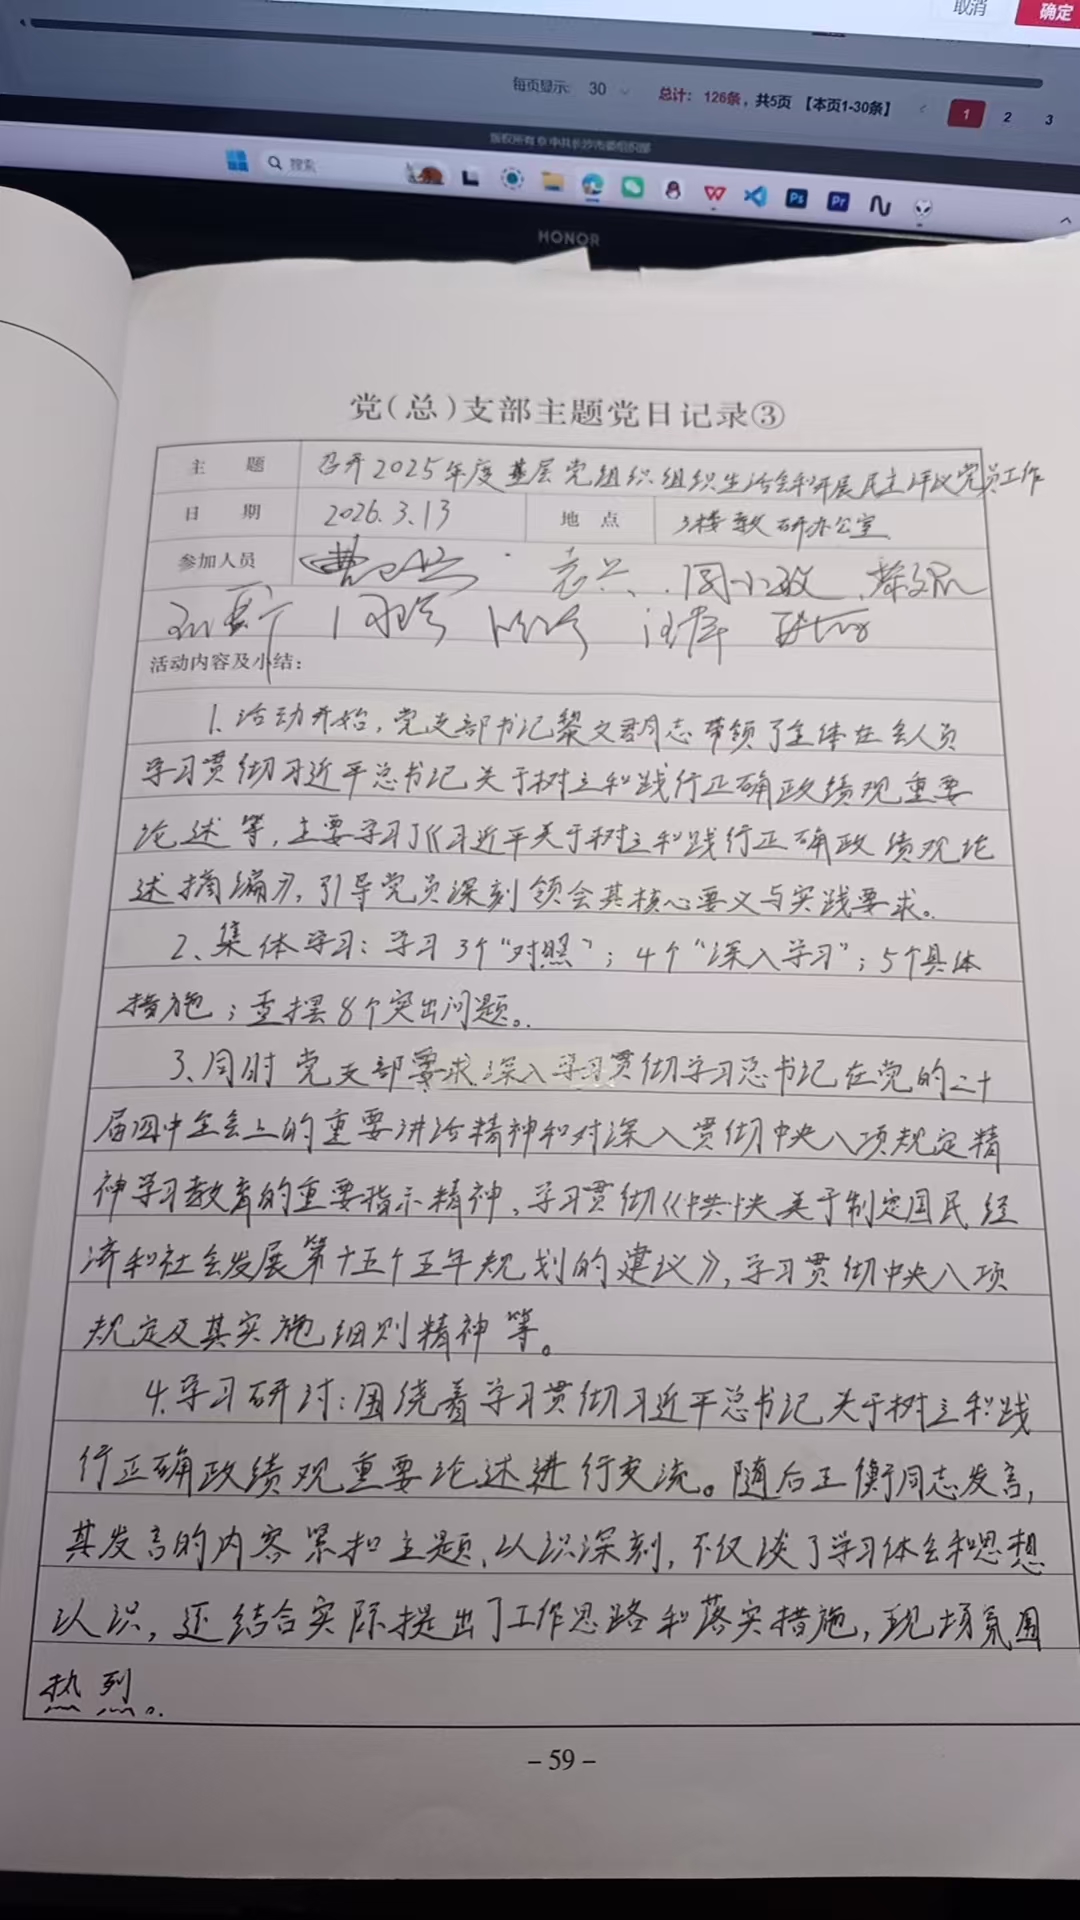 取消 确定
每页显示: 30 总计: 126条，共5页 【本页1-30条】 < 1 2 3
版权所有©中共长沙市委组织部
搜索
HONOR
党(总)支部主题党日记录③
主 题 召开2025年度基层党组织组织生活会和开展民主评议党员工作
日 期 2026.3.13 地 点 3楼教研办公室
参加人员 袁兴
活动内容及小结:
1.活动开始,党支部书记黎文君同志带领了全体在会人员
学习贯彻习近平总书记关于树立和践行正确政绩观重要
论述等,主要学习了《习近平关于树立和践行正确政绩观论
述摘编》,引导党员深刻领会其核心要义与实践要求。
2、集体学习:学习3个“对照”;4个“深入学习”;5个具体
措施;查摆8个突出问题。
3、同时党支部要求深入学习贯彻学习总书记在党的二十
届四中全会上的重要讲话精神和对深入贯彻中央八项规定精
神学习教育的重要指示精神、学习贯彻《中共中央关于制定国民经
济和社会发展第十五个五年规划的建议》,学习贯彻中央八项
规定及其实施细则精神等。
4.学习研讨:围绕着学习贯彻习近平总书记关于树立和践
行正确政绩观重要论述进行交流。随后王衡同志发言,
其发言的内容紧扣主题、认识深刻,不仅谈了学习体会和思想
认识,还结合实际提出了工作思路和落实措施,现场氛围
热烈。
-59-